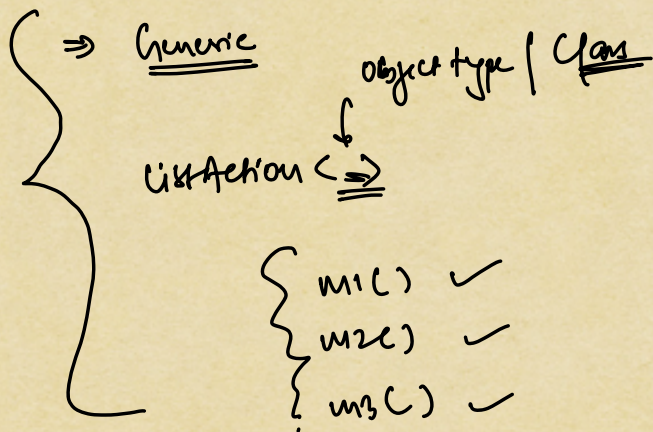 ⇒ Generic
Object type | Class
ListAction < = >
m1() ✓
m2() ✓
m3() ✓